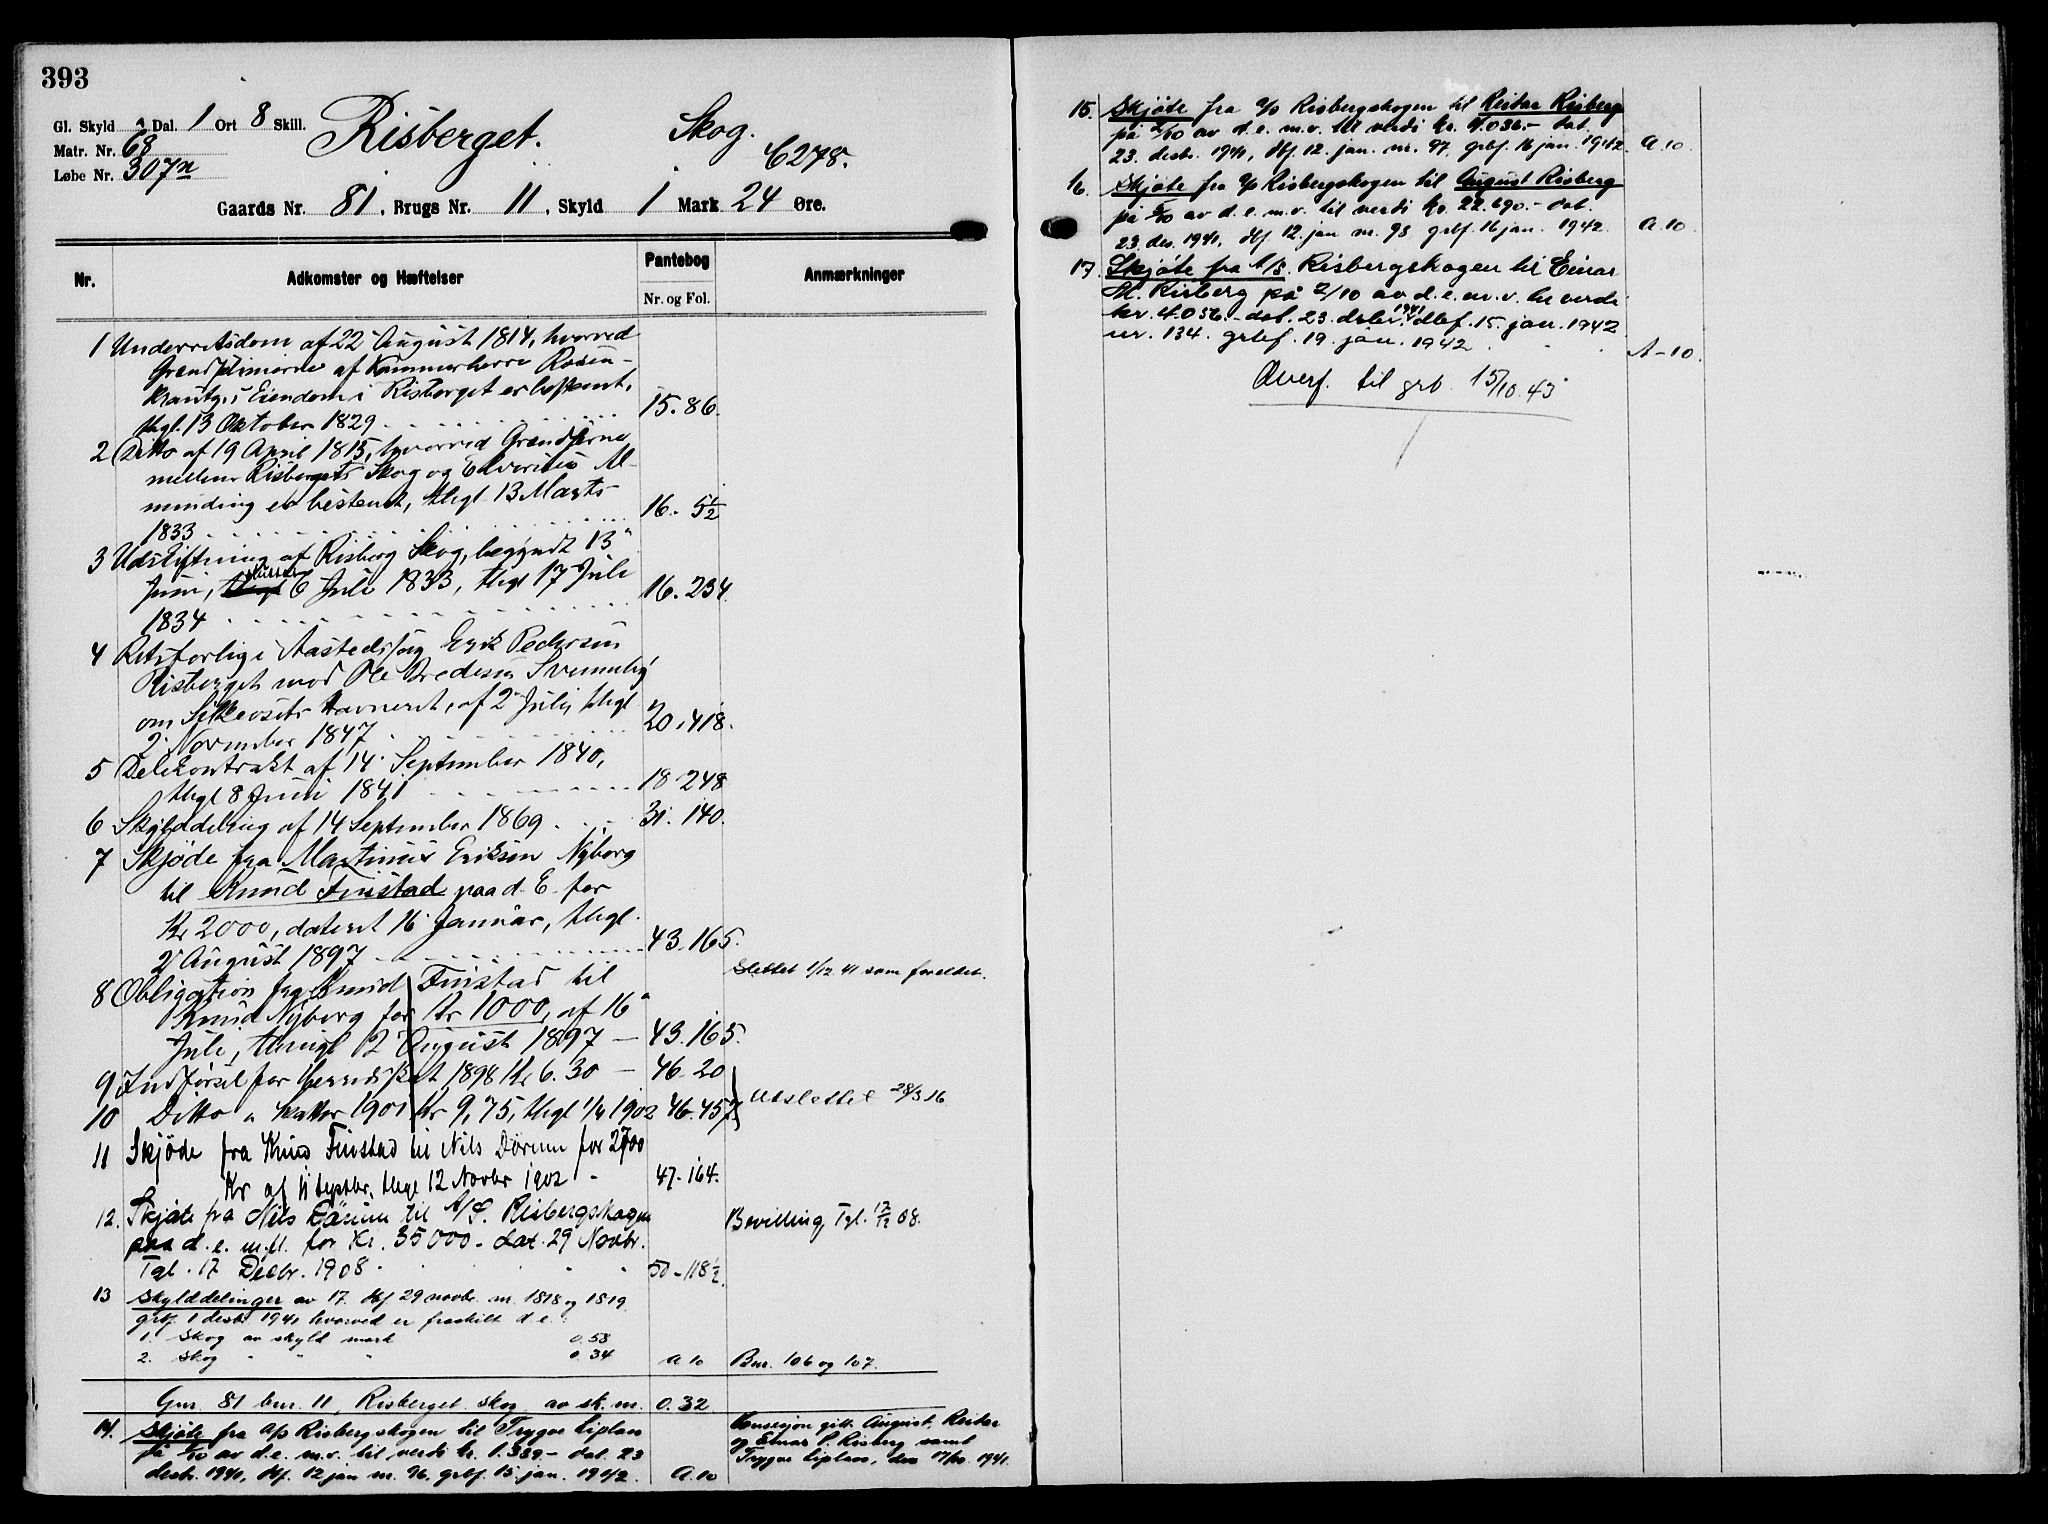 393
Gl. Skyld Dal. 1 Ort 8 Skill.
Matr. Nr. 68
Løbe Nr. 307n
Risberget. Skog.
6278.
Gaards Nr. 81, Brugs Nr. 11, Skyld 1 Mark 24 Øre.
Nr. Adkomster og Hæftelser Pantebog Nr. og Fol. Anmærkninger
1 Underretsdom af 22 August 1814, hvorved
af Kammerherre Rosen-
krantz's Eiendom i Risberget er bestemt,
thgl. 13 Oktober 1829 15. 86.
2 Ditto af 19 April 1815, hvorved Grændserne
mellem Risbergets Skog og Elverums Al-
minding er bestemt, thgl 13 Marts
1833 16. 5 1/2
3 Udskiftning af Risberg Skog, begyndt 13
Juni, sluttet 6 Juli 1833, thgl 17 Juli
1834 16. 234.
4 Retsforlig i Aastedssag Erik Pedersen
Risberget mod Ole
om Havneret, af 2 Juli, thgl
2 November 1847 20. 418.
5 Delekontrakt af 14 September 1840,
thgl 8 Juni 1841 18 248
6 Skylddeling af 14 September 1869 31. 140.
7 Skjøde fra Martinus Eriksen Nyborg
til Knud Finstad paa d. E. for
Kr 2000, dateret 16 Januar, thgl.
2 August 1897 43. 165.
Slettet 1/12 41 som foreldet.
8 Obligation fra Knud Finstad til
Knud Nyborg for Kr 1000, af 16
Juli, thingl 2 August 1897 — 43. 165.
9 Indførsel for Herredsskat 1898 Kr 6.30 — 46. 20
10 Ditto " Skatter 1901 Kr 9,75, thgl 1/4 1902 46. 457 Utslettet 28/3 16
11 Skjøde fra Knud Finstad til Nils Dørum for 2700
Kr af 11 Septbr, thgl 12 Novbr 1902 - 47. 164.
12. Skjøte fra Nils Dørum til A/S. Risbergskogen
paa d. e. m.fl. for Kr. 35000.- dat. 29 Novbr.
Tgl. 17 Decbr. 1908 50 - 118 1/2. Bevilling, Tgl. 17/12 08.
13 Skylddelinger av 17. dbf 29 novbr. nr. 1818 og 1819.
grbf. 1 desbr 1941 hvorved er fraskilt d.e.:
1. Skog av skyld mark 0.58
2. Skog " " " 0.34 A 10 Bnr. 106 og 107.
Gnr. 81 bnr. 11, Risberget skog av sk. m. 0.32
14. Skjøte fra A/S Risbergskogen til Trygve Liplass
på 1/10 av d.e. m.v. til verdi kr. 1.389.- dat. 23
desbr. 1941, dbf. 12 jan nr. 96, grbf. 15. jan. 1942. A. 10
Konsesjon gitt August, Reidar
og Einar P. Risberg samt
Trygve Liplass, den 17/10. 1941.
15. Skjøte fra A/S Risbergskogen til Reidar Risberg
på 2/10 av d.e. m.v. til verdi kr. 4.036.- dat.
23. desbr. 1941, dbf. 12. jan. nr. 97, grbf. 16 jan. 1942. A. 10.
16. Skjøte fra A/S Risbergskogen til August Risberg
på 5/10 av d.e. m.v. til verdi kr. 22.690.- dat.
23. des. 1941, dbf. 12. jan nr. 98 grbf. 16 jan. 1942. A. 10.
17. Skjøte fra A/S. Risbergskogen til Einar
M. Risberg på 2/10 av d.e. m.v. til verdi
kr. 4.036.- dat. 23. desbr. 1941 dbf. 15. jan. 1942
nr. 134. grbf. 19. jan. 1942. A - 10.
Overf. til grb. 15/10. 43